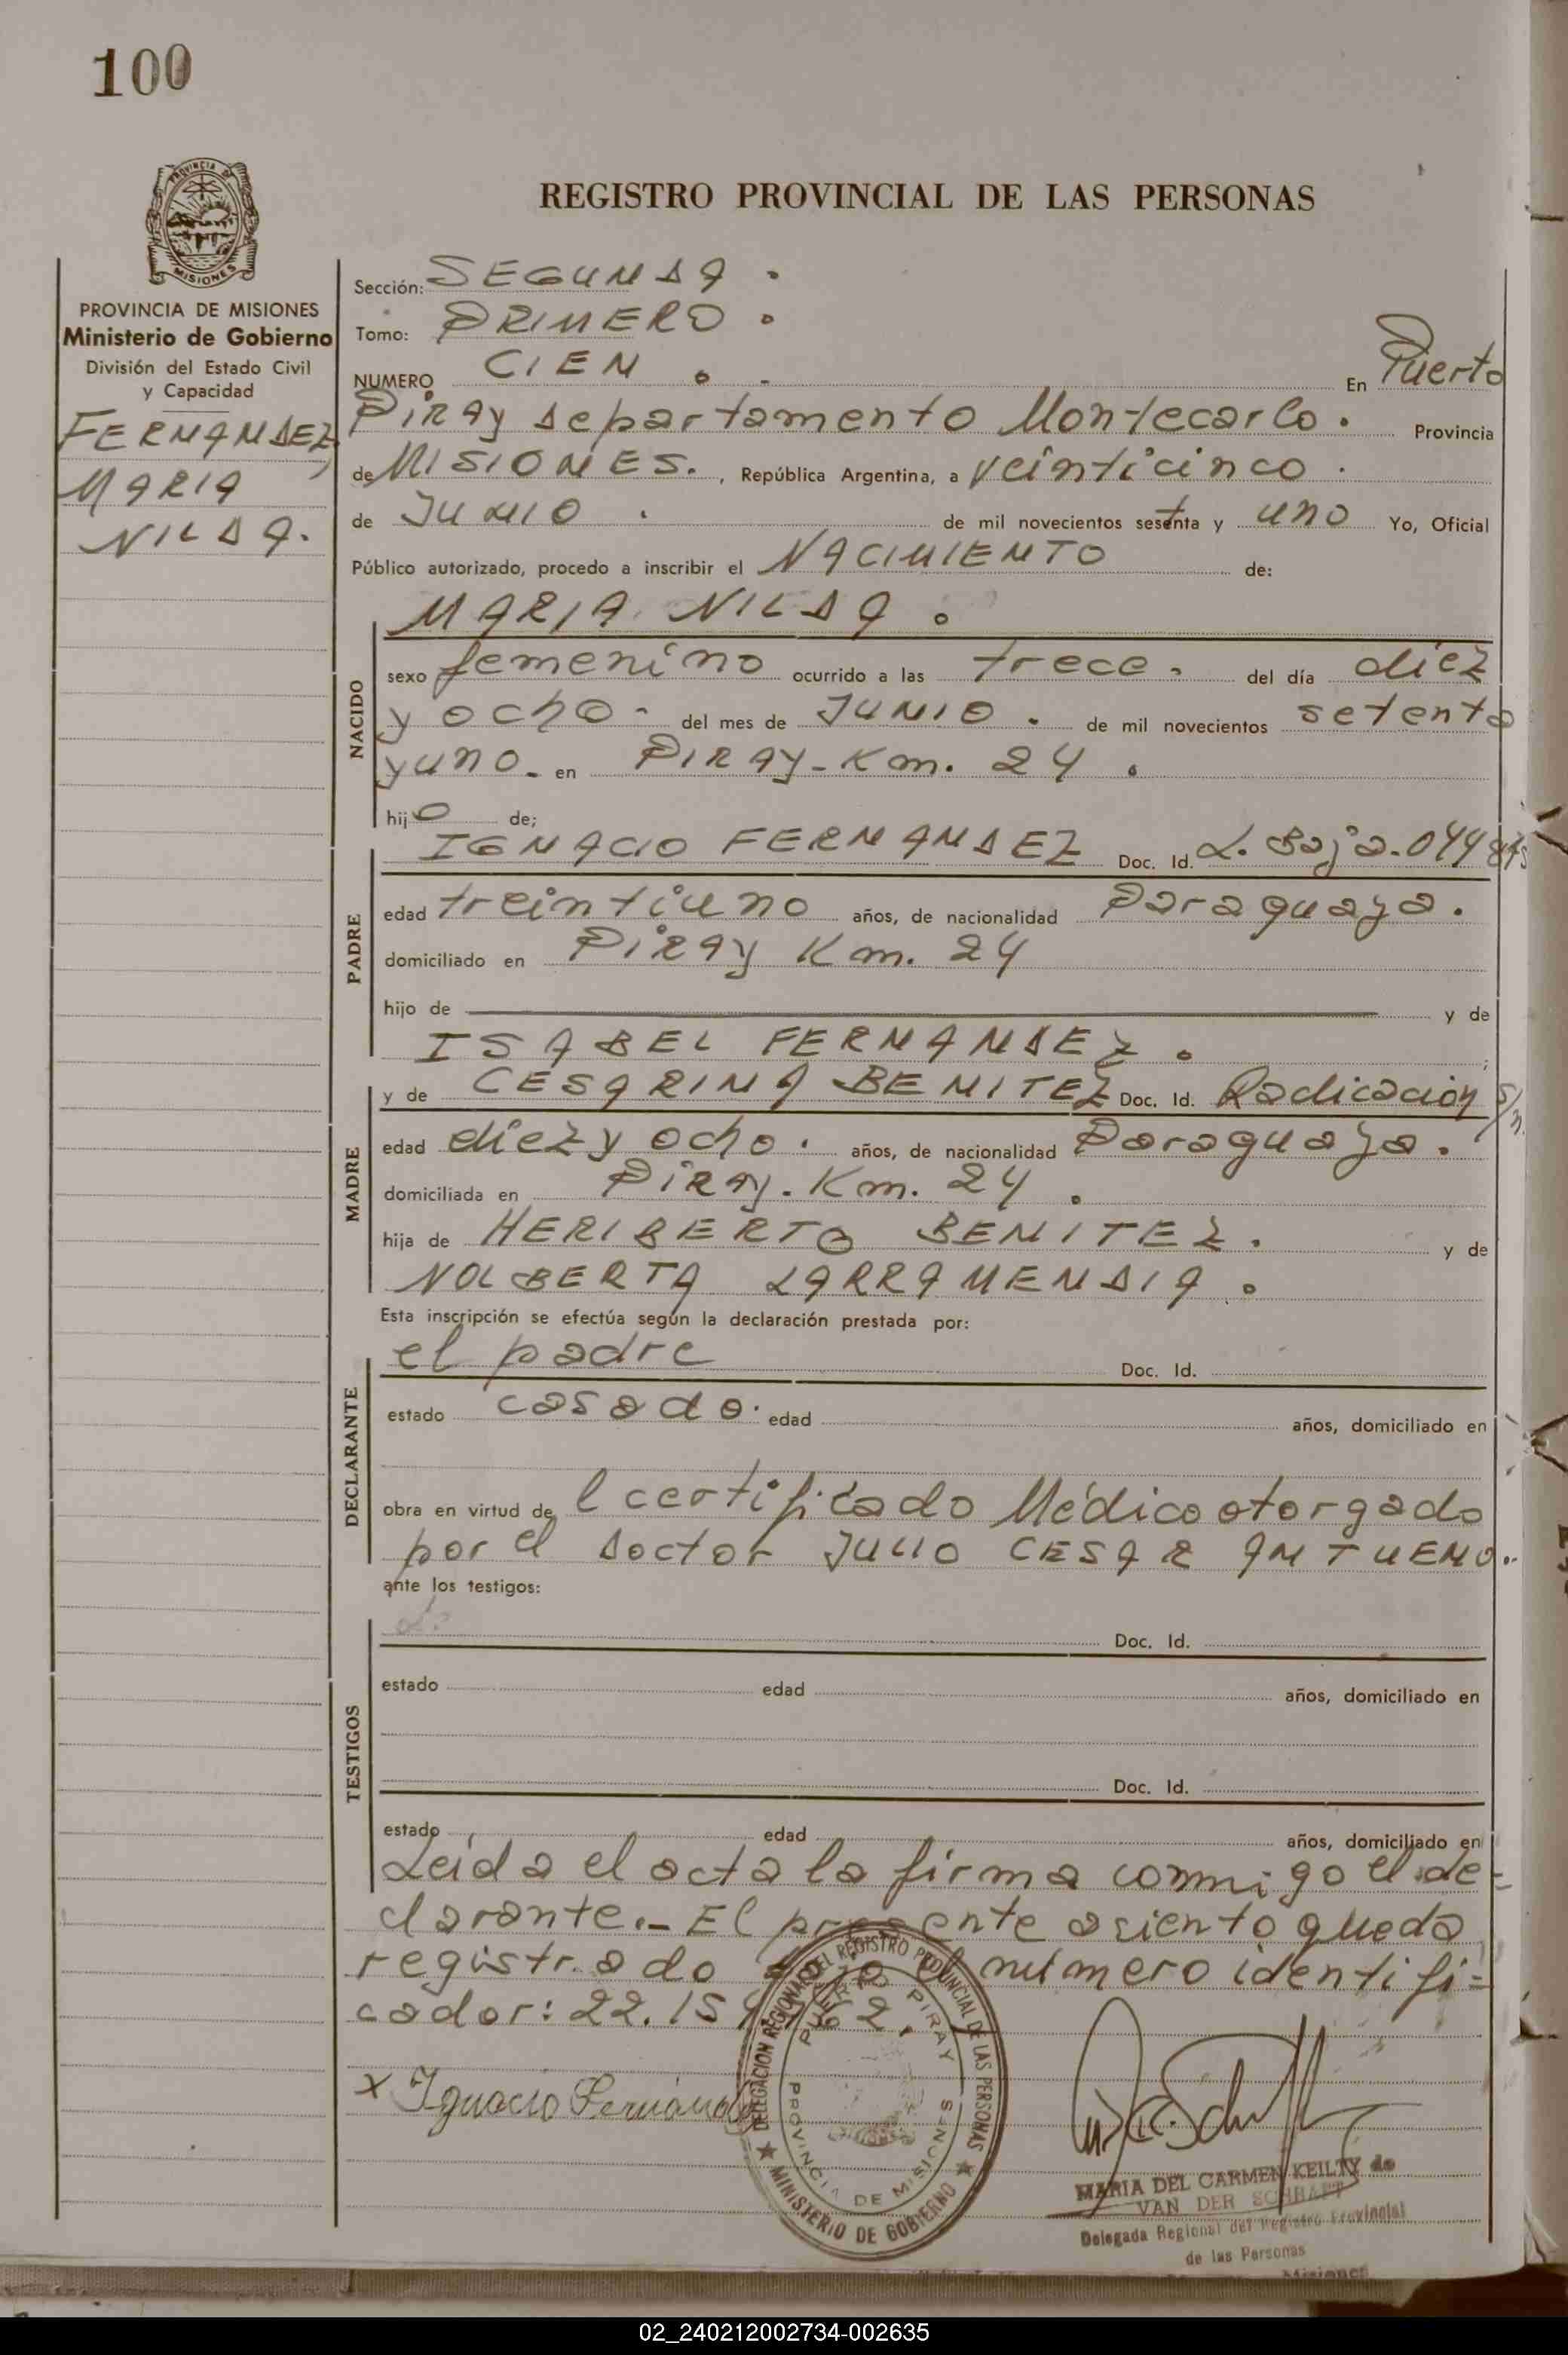 100
PROVINCIA DE
MISIONES
REGISTRO PROVINCIAL DE LAS PERSONAS
PROVINCIA DE MISIONES
Ministerio de Gobierno
División del Estado Civil
y Capacidad
FERNANDEZ,
MARIA
NILDA.
Sección: SEGUNDA.
Tomo: PRIMERO.
NUMERO CIEN. - En Puerto
Piray departamento Montecarlo. Provincia
de MISIONES., República Argentina, a veinticinco.
de JUNIO. de mil novecientos setenta y uno Yo, Oficial
Público autorizado, procedo a inscribir el NACIMIENTO de:
MARIA NILDA.
NACIDO
sexo femenino ocurrido a las trece. del día diez
y ocho- del mes de JUNIO. de mil novecientos setenta
y uno.- en PIRAY-Km. 24.
hijo de;
PADRE
IGNACIO FERNANDEZ Doc. Id. L. Baja.
edad treintiuno años, de nacionalidad Paraguaya.
domiciliado en PIRAY Km. 24
hijo de y de
ISABEL FERNANDEZ.
MADRE
y de CESARINA BENITEZ Doc. Id. Radicación S/n.
edad diez y ocho. años, de nacionalidad Paraguaya.
domiciliada en PIRAY. Km. 24.
hija de HERIBERTO BENITEZ. y de
NOLBERTA LARRAMENDIA.
Esta inscripción se efectúa según la declaración prestada por:
DECLARANTE
el padre Doc. Id.
estado casado. edad años, domiciliado en
obra en virtud del certificado Médico otorgado
por el Doctor JULIO CESAR ANTUENO.
ante los testigos:
TESTIGOS
Doc. Id.
estado edad años, domiciliado en
Doc. Id.
estado edad años, domiciliado en
Leída el acta la firma conmigo el de-
clarante.- El presente asiento queda
registrado bajo el número identifi=
cador:
x Ignacio Fernandez
DELEGACION REGIONAL DEL REGISTRO PROVINCIAL DE LAS PERSONAS
PUERTO PIRAY
PROVINCIA DE MISIONES
★ MINISTERIO DE GOBIERNO ★
MARIA DEL CARMEN KEILTY de
VAN DER SCHRAFT
Delegada Regional del Registro Provincial
de las Personas
Misiones
02_240212002734-002635